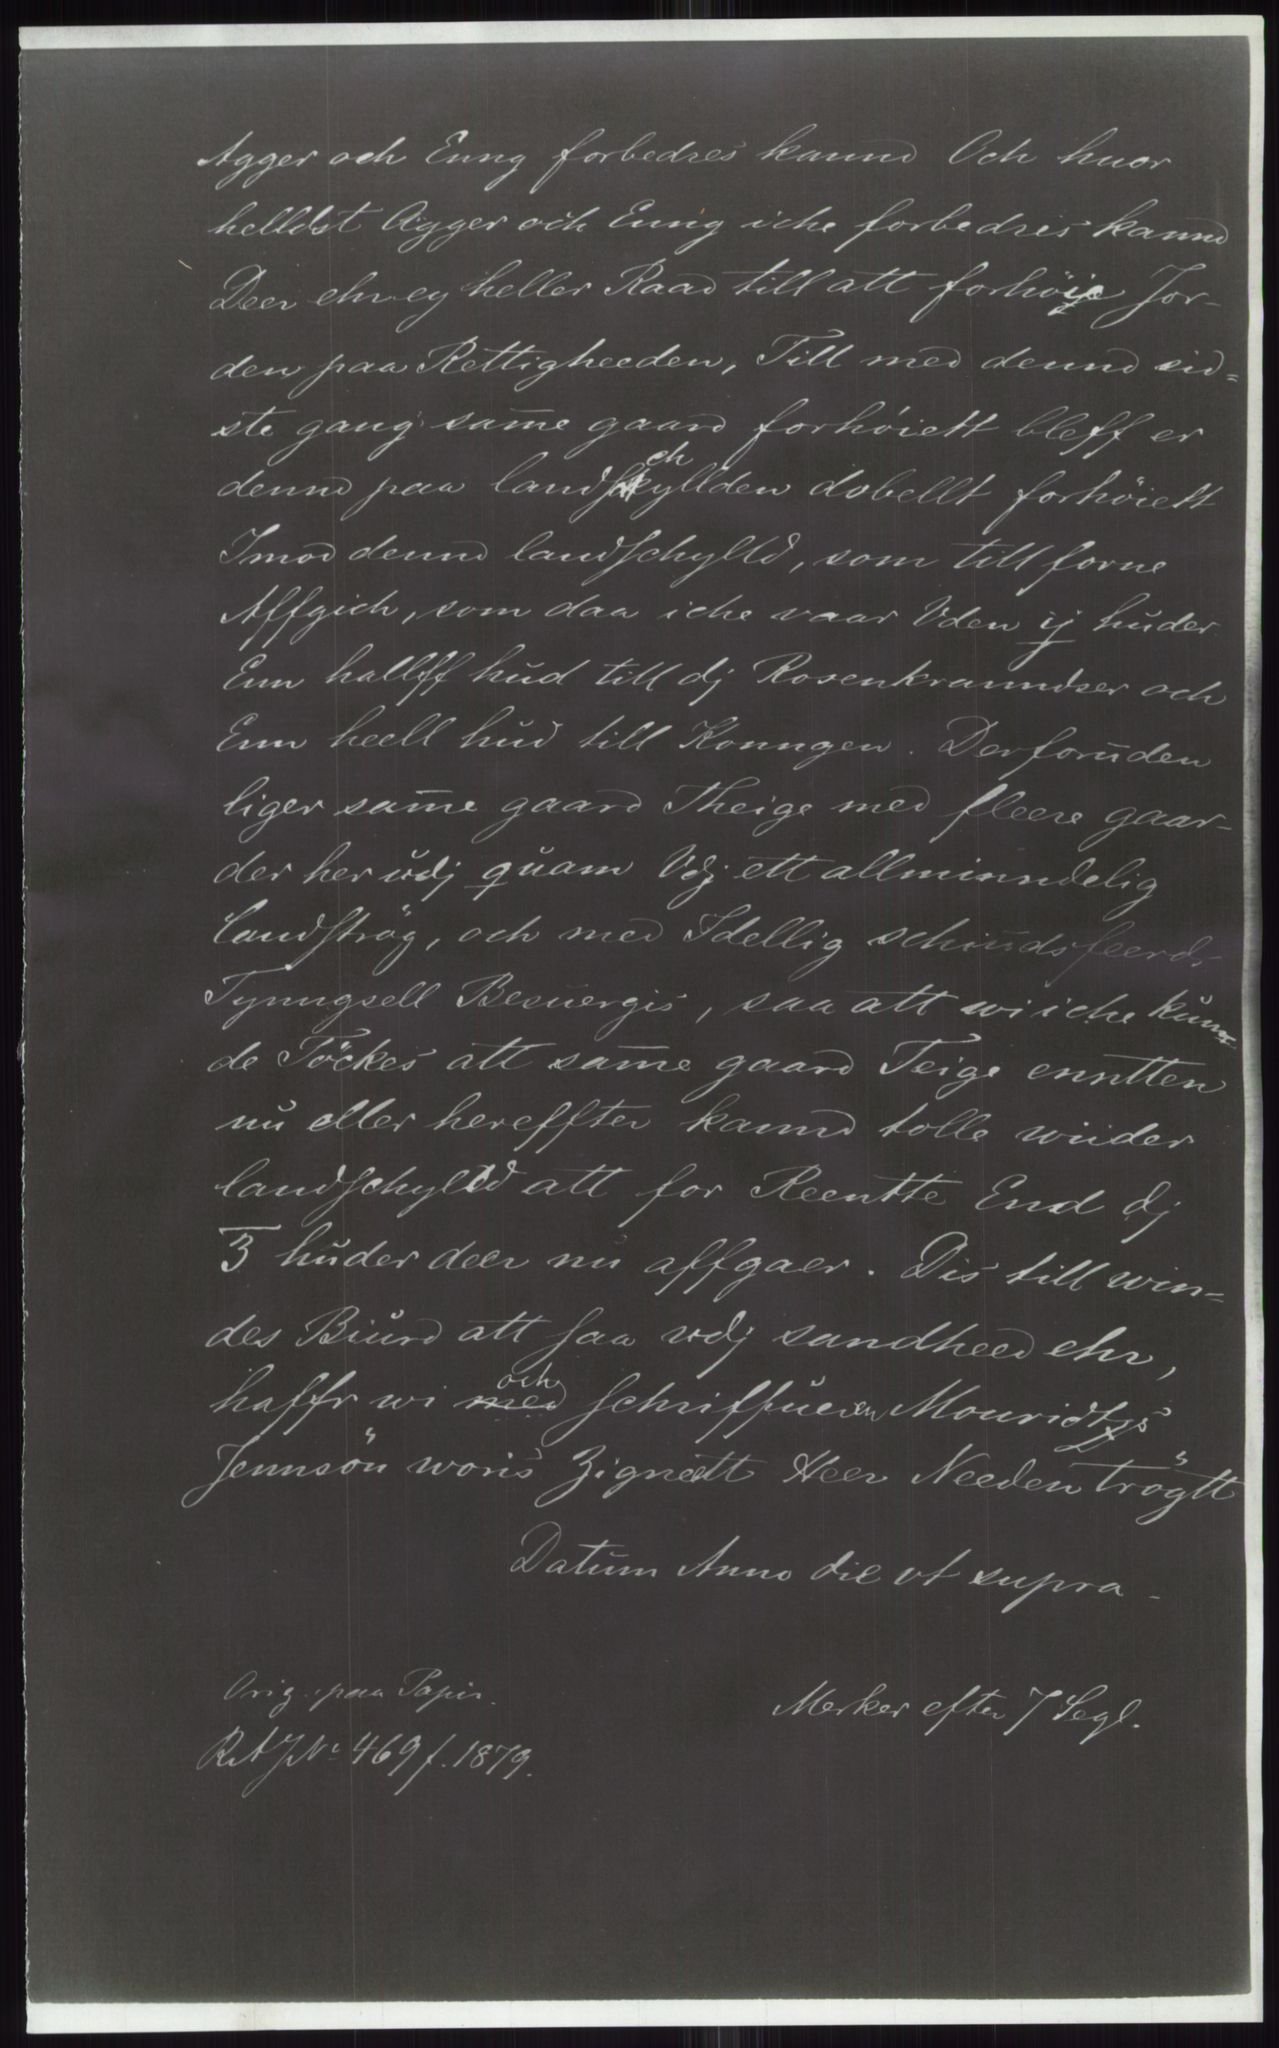 Agger och Enng forbedres kannd Och huor
helldst Agger och Enng iche forbedris kannd
Deer ehr ey heller Raad till att forhöie Jor-
den paa Rettigheeden, Till med dennd sid=
ste gang same gaard forhöiett bleff er
dennd paa landschyllden dobellt forhöiett
Imod dennd landschylld, som till forne
Affgich, som daa iche vaar Vden ij huder
Enn hallff hud till dj Rosenkranndser och
Enn heell hud till Konngen. Derforuden
liger same gaard Theige med fleere gaar-
der her udj quam Vdj ett allminndelig
landströg, och med Idellig schiudsfeerds
Tynngsell Besuergis, saa att wi iche kunn-
de Töckes att same gaard Teige enntten
nu eller hereffter kannd tolle wiider
landschylld att for Reentte End dj
3 huder deer nu affgaer. Dis till win-
des Biurd att saa vdj sandheed ehr,
haffr wi med och schriffueren Mouridtzs
Jennsön woris Zignett Heer Needen trögtt
Datum Anno die vt supra -
Orig. paa Papir.
Merker efter 7 Segl.
RA JNr 469 f. 1879.